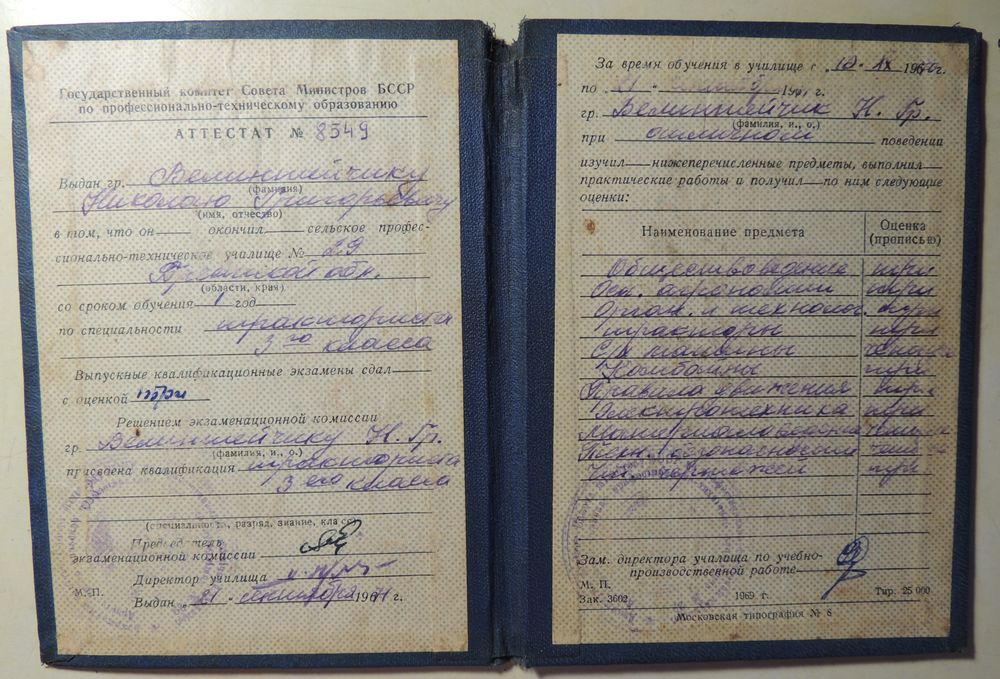 Государственный комитет Совета Министров БССР
по профессионально-техническому образованию
АТТЕСТАТ № 8549
Выдан гр. Велиншейчику
(фамилия)
Николаю Григорьевичу
(имя, отчество)
в том, что он окончил сельское профес-
сионально-техническое училище № 29
обл.
(области, края)
со сроком обучения год
по специальности тракториста
3го класса
Выпускные квалификационные экзамены сдал
с оценкой три
Решением экзаменационной комиссии
гр. Велиншейчику Н. Гр.
(фамилия, и., о.)
присвоена квалификация тракториста
3его класса
(специальность, разряд, звание, класс)
Председатель
экзаменационной комиссии
Директор училища
М. П.
Выдан " 21 " 19 г.
За время обучения в училище с " 10 " IX 19 г.
по 19 г.
гр. Велиншейчик Н. Гр.
(фамилия, и., о.)
при отличном поведении
изучил нижеперечисленные предметы, выполнил
практические работы и получил по ним следующие
оценки:
Наименование предмета Оценка (прописью)
Обществоведение три
Осн. агрономии три
Орган. и технолог. три
тракторы три
С/х машины
Комбайны три
Правила движения три
Электротехника три
Материаловедение
Техн. безопасности
Чт. чертежей три
Зам. директора училища по учебно-
производственной работе
М. П.
Зак. 3602 1969 г. Тир. 25 000
Московская типография № 8